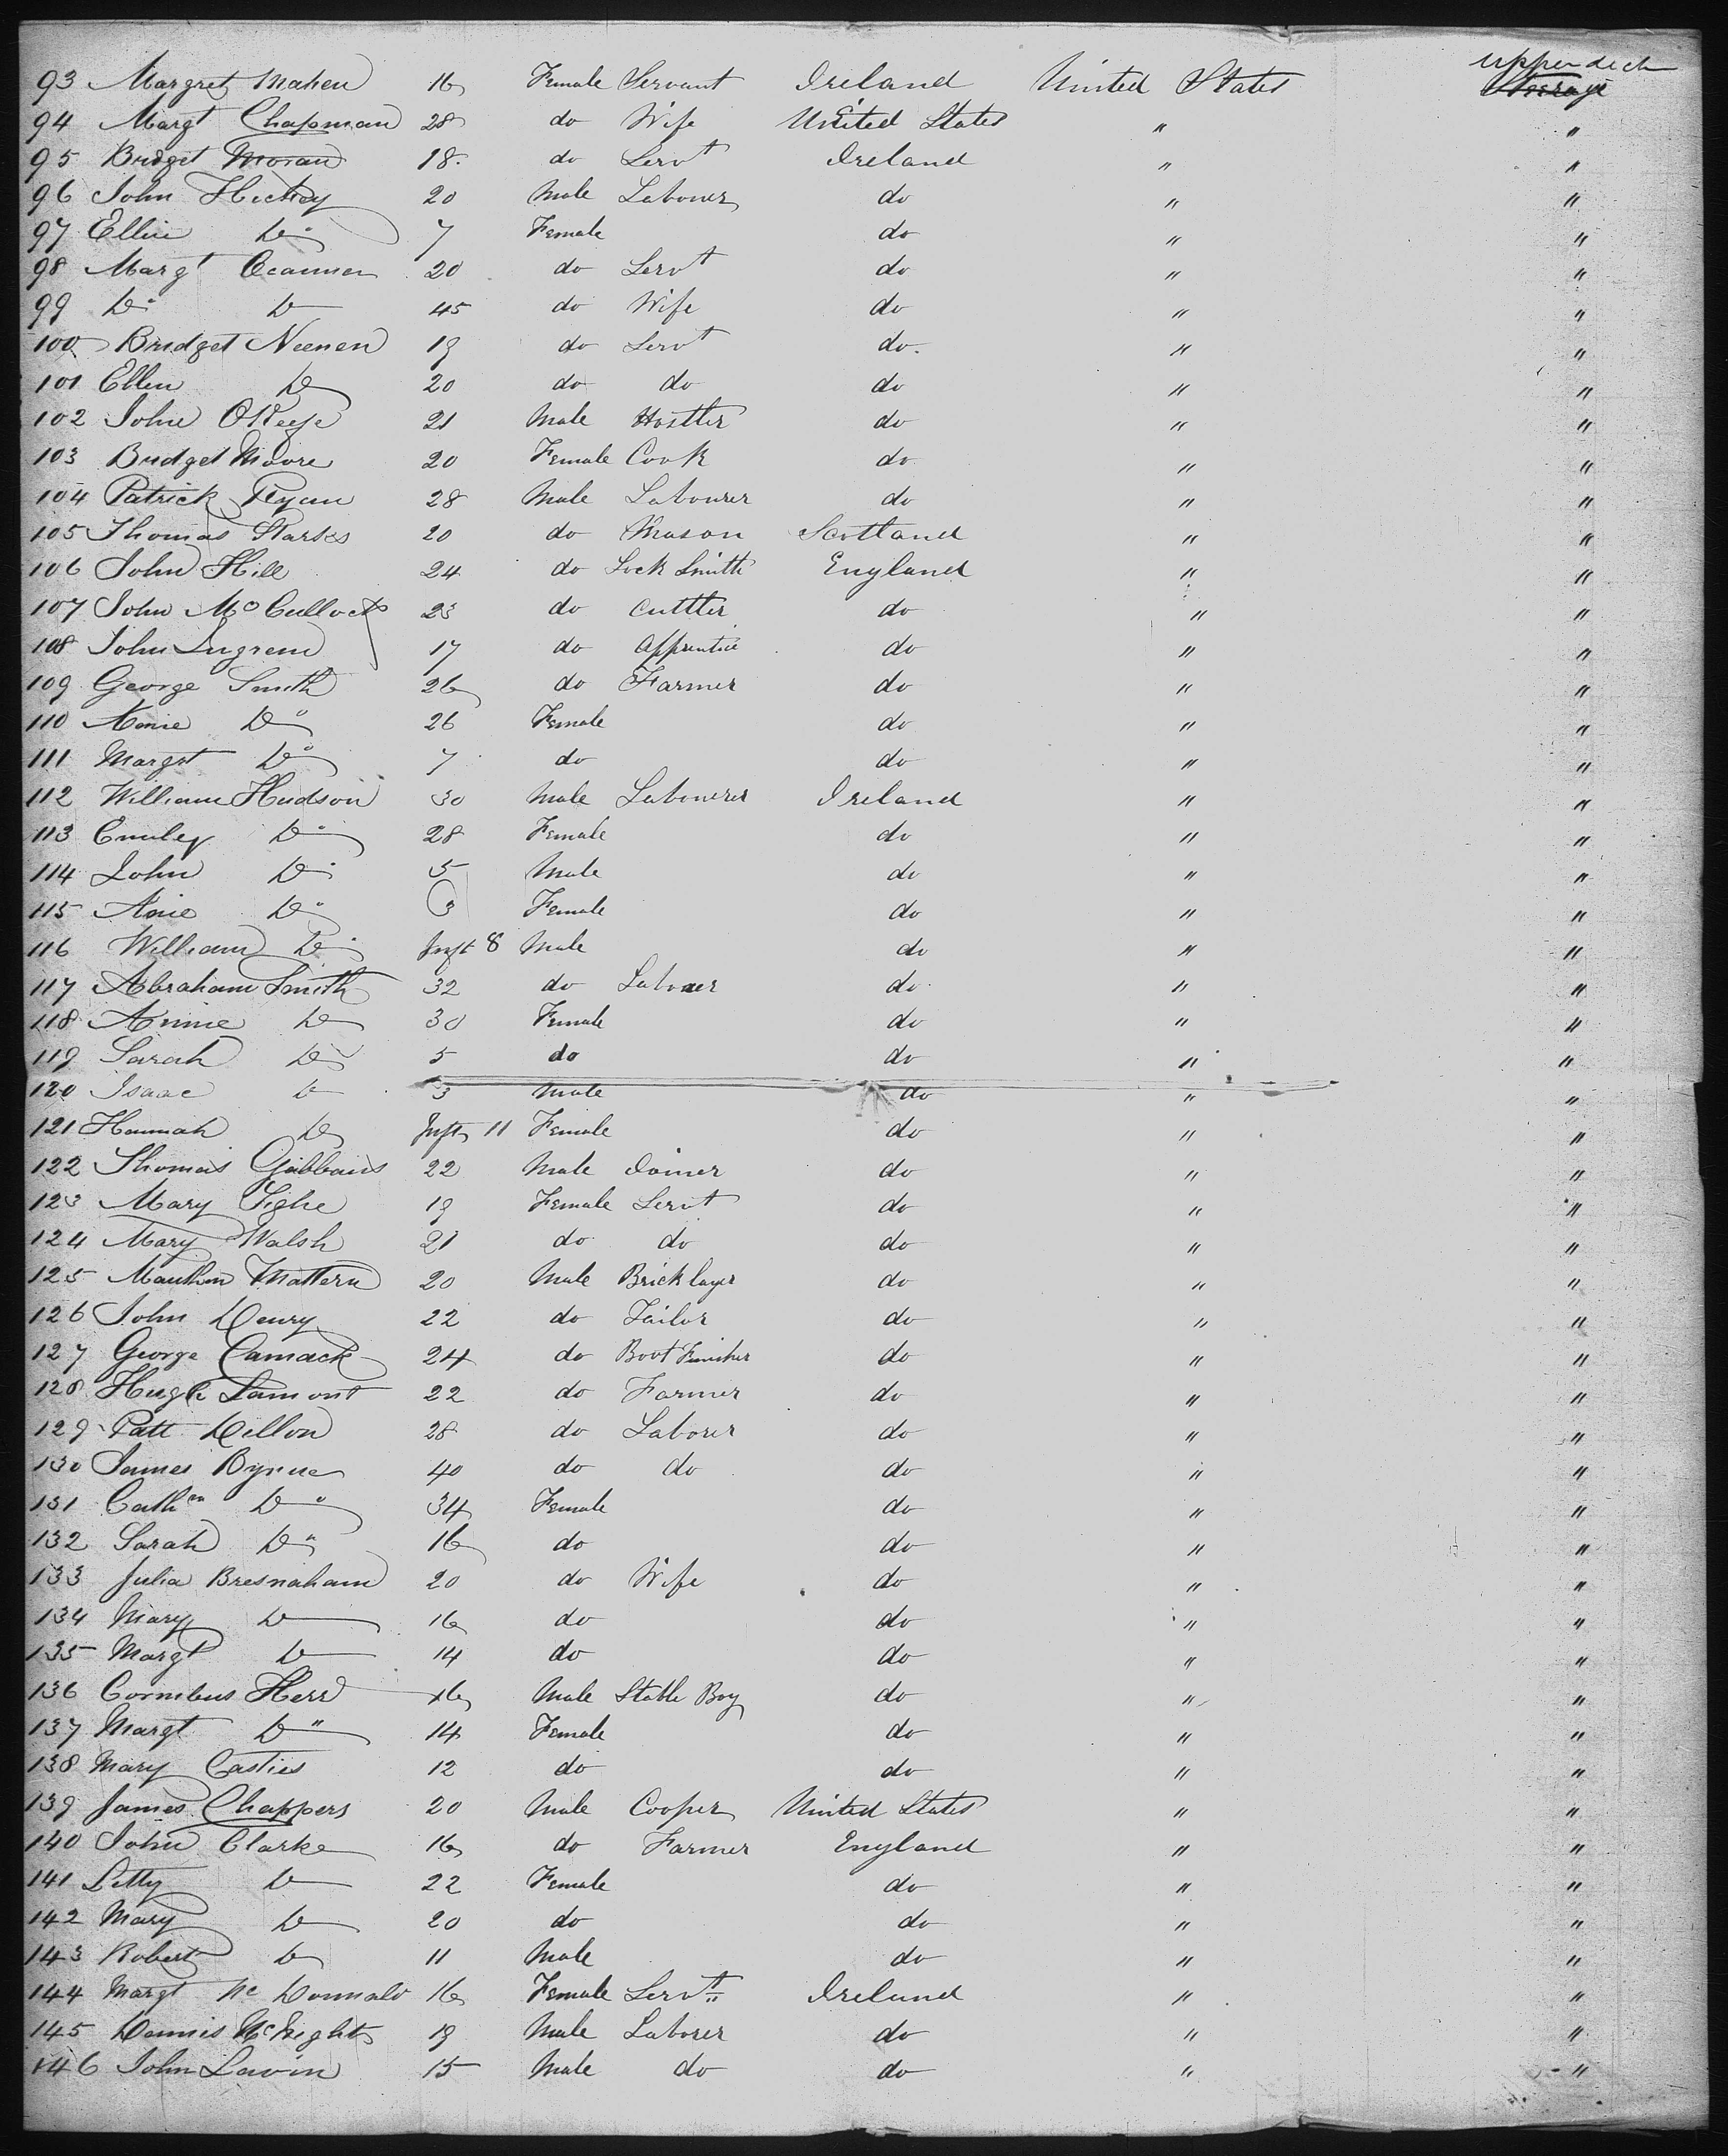 93 Margret Mahen 16 Female Servant Ireland United States upper deck Steerage
94 Margt Chapman 28 do Wife United States " "
95 Bridget Moran 18 do Servt Ireland " "
96 John Hickey 20 Male Labourer do " "
97 Ellie Do 7 Female do " "
98 Margt 20 do Servt do " "
99 Do Do 45 do Wife do " "
100 Bridget Neenen 19 do Servt do " "
101 Ellen Do 20 do do do " "
102 John OKeefe 21 Male Hostler do " "
103 Bridget Moore 20 Female Cook do " "
104 Patrick Ryan 28 Male Labourer do " "
105 Thomas 20 do Mason Scotland " "
106 John Hill 24 do Lock Smith England " "
107 John McCulloch 23 do Cuttler do " "
108 John Ingrem 17 do Apprentice do " "
109 George Smith 26 do Farmer do " "
110 Annie Do 26 Female do " "
111 Margt Do 7 do do " "
112 William Hudson 30 Male Labourer Ireland " "
113 Emiley Do 28 Female do " "
114 John Do 5 Male do " "
115 Anie Do 3 Female do " "
116 William Do Inft 8 Male do " "
117 Abraham Smith 32 do Laborer do " "
118 Annie Do 30 Female do " "
119 Sarah Do 5 do do " "
120 Isaac Do 3 Male do " "
121 Hannah Do Inft 11 Female do " "
122 Thomas Gibbons 22 Male Joiner do " "
123 Mary Tighe 19 Female Servt do " "
124 Mary Walsh 21 do do do " "
125 Mattern 20 Male Brick layer do " "
126 John Henry 22 do Tailor do " "
127 George Camack 24 do Boot Finisher do " "
128 Hugh Lamont 22 do Farmer do " "
129 Patt Dillon 28 do Laborer do " "
130 James Byrne 40 do do do " "
131 Cathen Do 34 Female do " "
132 Sarah Do 16 do do " "
133 Julia Bresnaham 20 do Wife do " "
134 Mary Do 16 do do " "
135 Margt Do 14 do do " "
136 Cornilius Herd 16 Male Stable Boy do " "
137 Margt Do 14 Female do " "
138 Mary Casties 12 do do " "
139 James Chappers 20 Male Cooper United States " "
140 John Clarke 16 do Farmer England " "
141 Letty Do 22 Female do " "
142 Mary Do 20 do do " "
143 Robert Do 11 Male do " "
144 Margt Mc Donnald 16 Female Servt Ireland " "
145 Dennis McKnight 19 Male Laborer do " "
146 John Lavin 15 Male do do " "